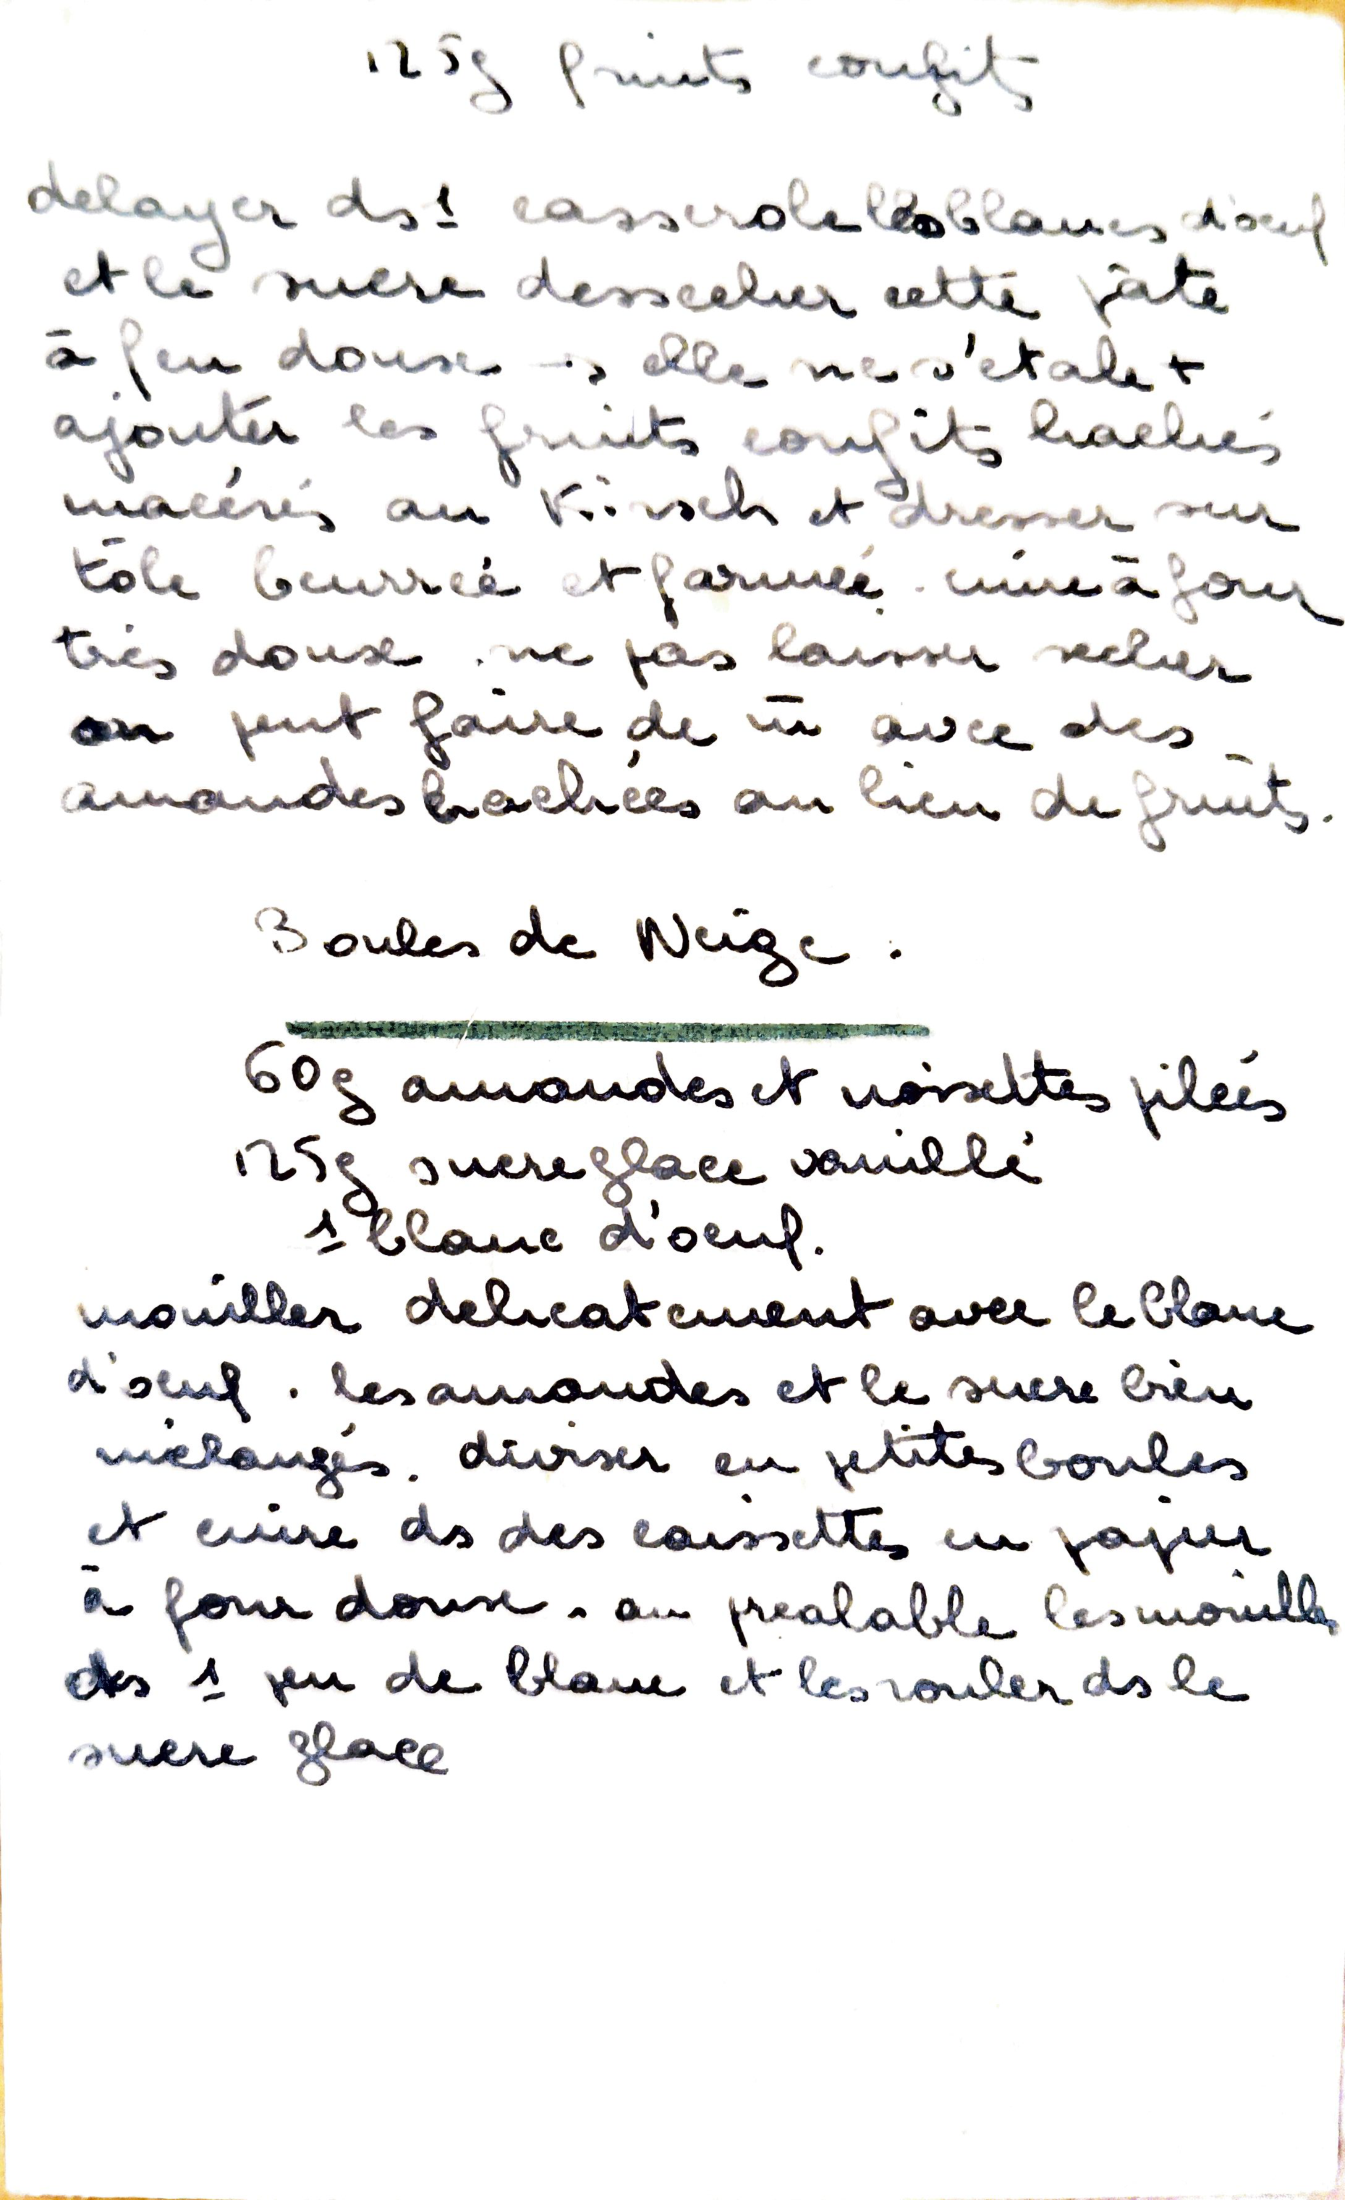 125g fruits confits
delayer ds 1 casserole les blancs d'oeuf
et le sucre dessecher cette pâte
à feu doux → elle ne s'etale +
ajouter les fruits confits hachés
macérés au Kirsch et dresser sur
tôle beurreé et farineé. cuire à four
très doux. ne pas laisser secher
on peut faire de m̄ avec des
amandes hachées au lieu de fruits.
Boules de Neige.
60g amandes et noisettes pileés
125g sucre glace vanillé
1 blanc d'oeuf.
mouiller delicatement avec le blanc
d'oeuf. les amandes et le sucre bien
mélangés. diviser en petites boules
et cuire ds des caissettes en papier
à four doux. au prealable les mouiller
ds 1 peu de blanc et les rouler ds le
sucre glace